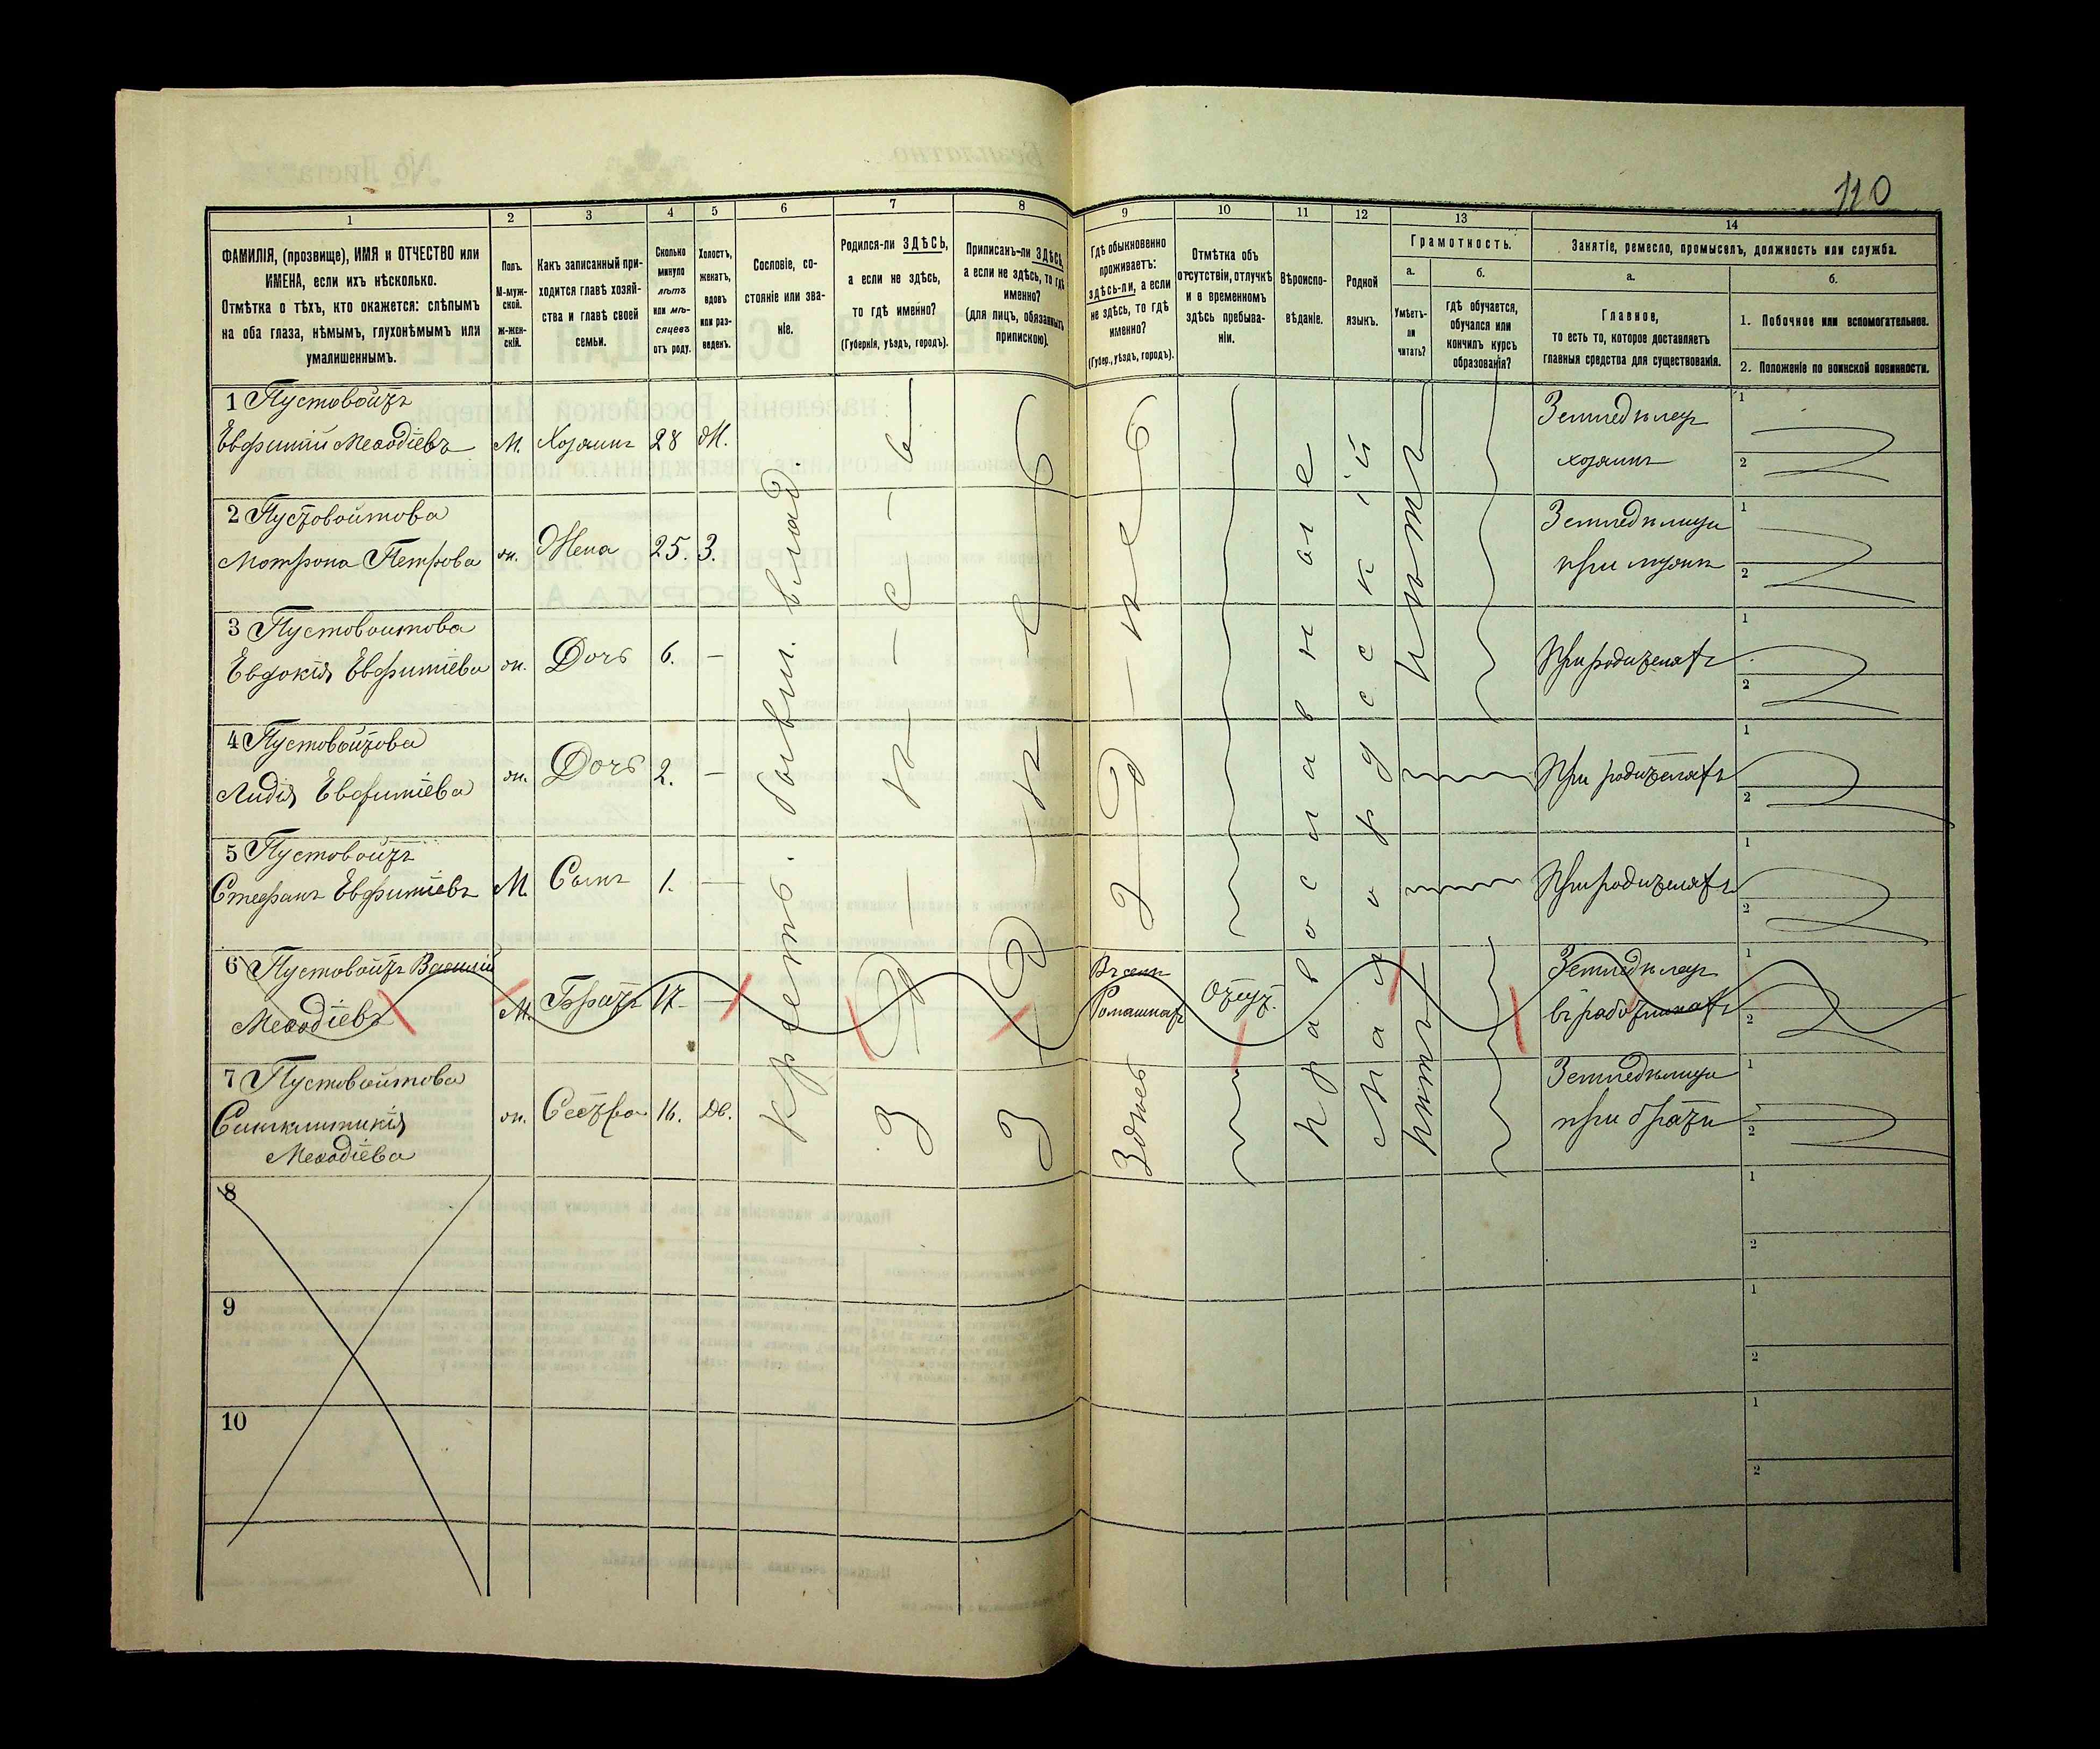 110
1 2 3 4 5 6 7 8 9 10 11 12 13 14
ФАМИЛІЯ, (прозвище), ИМЯ и ОТЧЕСТВО или
ИМЕНА, если ихъ нѣсколько.
Отмѣтка о тѣхъ, кто окажется: слѣпымъ
на оба глаза, нѣмымъ, глухонѣмымъ или
умалишеннымъ.
Полъ.
М-муж-
ской.
Ж-жен-
скій.
Какъ записанный при-
ходится главѣ хозяй-
ства и главѣ своей
семьи.
Сколько
минуло
лѣтъ
или мѣ-
сяцевъ
отъ роду.
Холостъ,
женатъ,
вдовъ
или раз-
веденъ.
Сословіе, со-
стояніе или зва-
ніе.
Родился-ли ЗДѢСЬ,
а если не здѣсь,
то гдѣ именно?
(Губернія, уѣздъ, городъ).
Приписанъ-ли ЗДѢСЬ,
а если не здѣсь, то гдѣ
именно?
(для лицъ, обязанныхъ
припискою).
Гдѣ обыкновенно
проживаетъ:
здѣсь-ли, а если
не здѣсь, то гдѣ
именно?
(Губер., уѣздъ, городъ).
Отмѣтка объ
отсутствіи, отлучкѣ
и о временномъ
здѣсь пребыва-
ніи.
Вѣроиспо-
вѣданіе.
Родной
языкъ.
Грамотность.
а.
Умѣетъ-
ли
читать?
б.
гдѣ обучается,
обучался или
кончилъ курсъ
образованія?
Занятіе, ремесло, промыселъ, должность или служба.
а.
Главное,
то есть то, которое доставляетъ
главныя средства для существованія.
б.
1. Побочное или вспомогательное.
2. Положеніе по воинской повинности.
1 Пустовойтъ
Евфимій Меѳодіевъ М. Хозяинъ 28 Ж.
Земледѣлец
хозяинъ
1
2
2 Пустовойтова
Мотрона Петрова ж. Жена 25. З.
Земледѣлица
при мужѣ
1
2
3 Пустовойтова
Евдокія Евфиміева ж. Дочь 6. —
При родителяхъ
1
2
4 Пустовойтова
Лидія Евфиміева ж. Дочь 2. —
При родителяхъ
1
2
5 Пустовойтъ
Стефанъ Евфиміевъ М. Сынъ 1. —
При родителяхъ
1
2
6 Пустовойтъ Василій
Меѳодіевъ М. Братъ 17 —
Въ селѣ
Ромашкахъ
Отлут.
Земледѣлец
въ работникахъ
1
2
7 Пустовойтова
Синклитикія
Меѳодіева ж. Сестра 16. Дв.
Земледѣлица
при братѣ
1
2
Крестъ. бывш. влад.
Здѣсь
Здѣсь
Здѣсь
Здѣсь
православное
малорусскій
нѣтъ
нѣтъ
8
1
2
9
1
2
10
1
2